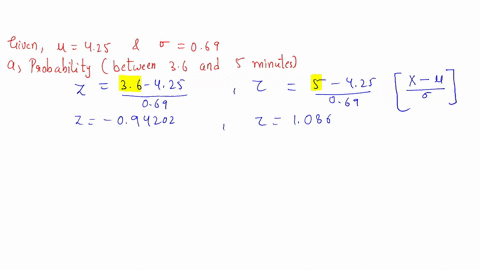 Given, μ = 4.25 & σ = 0.69
a, Probability (between 3.6 and 5 minutes)
z = 3.6 - 4.25 / 0.69 , z = 5 - 4.25 / 0.69 [X - μ / σ]
z = -0.94202 , z = 1.086